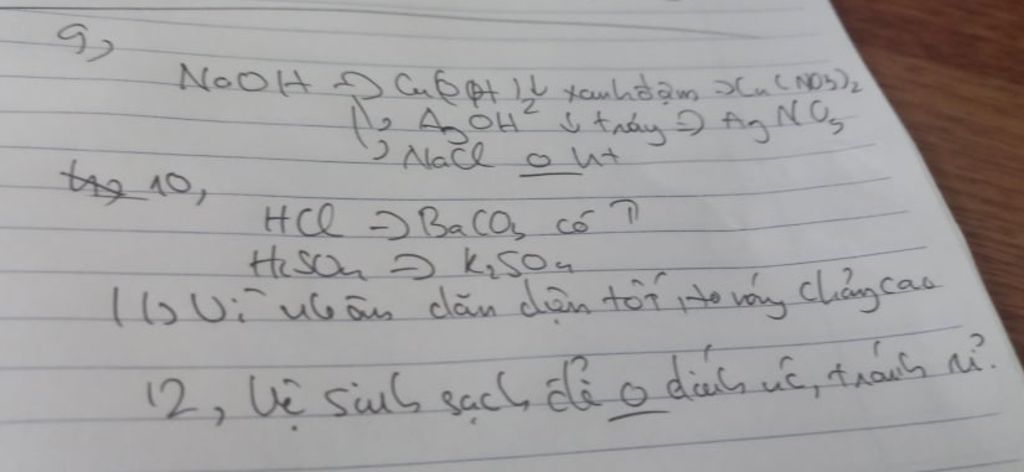 9,
NaOH => Cu(OH)2↓ xanh đậm => Cu(NO3)2
AgOH ↓ trắng => AgNO3
NaCl o ht
10,
HCl => BaCO3 có ↑
H2SO4 => K2SO4
11, Vì nhôm dẫn điện tốt, to nóng chảy cao
12, Vệ sinh sạch để o dính nc, tránh rỉ.